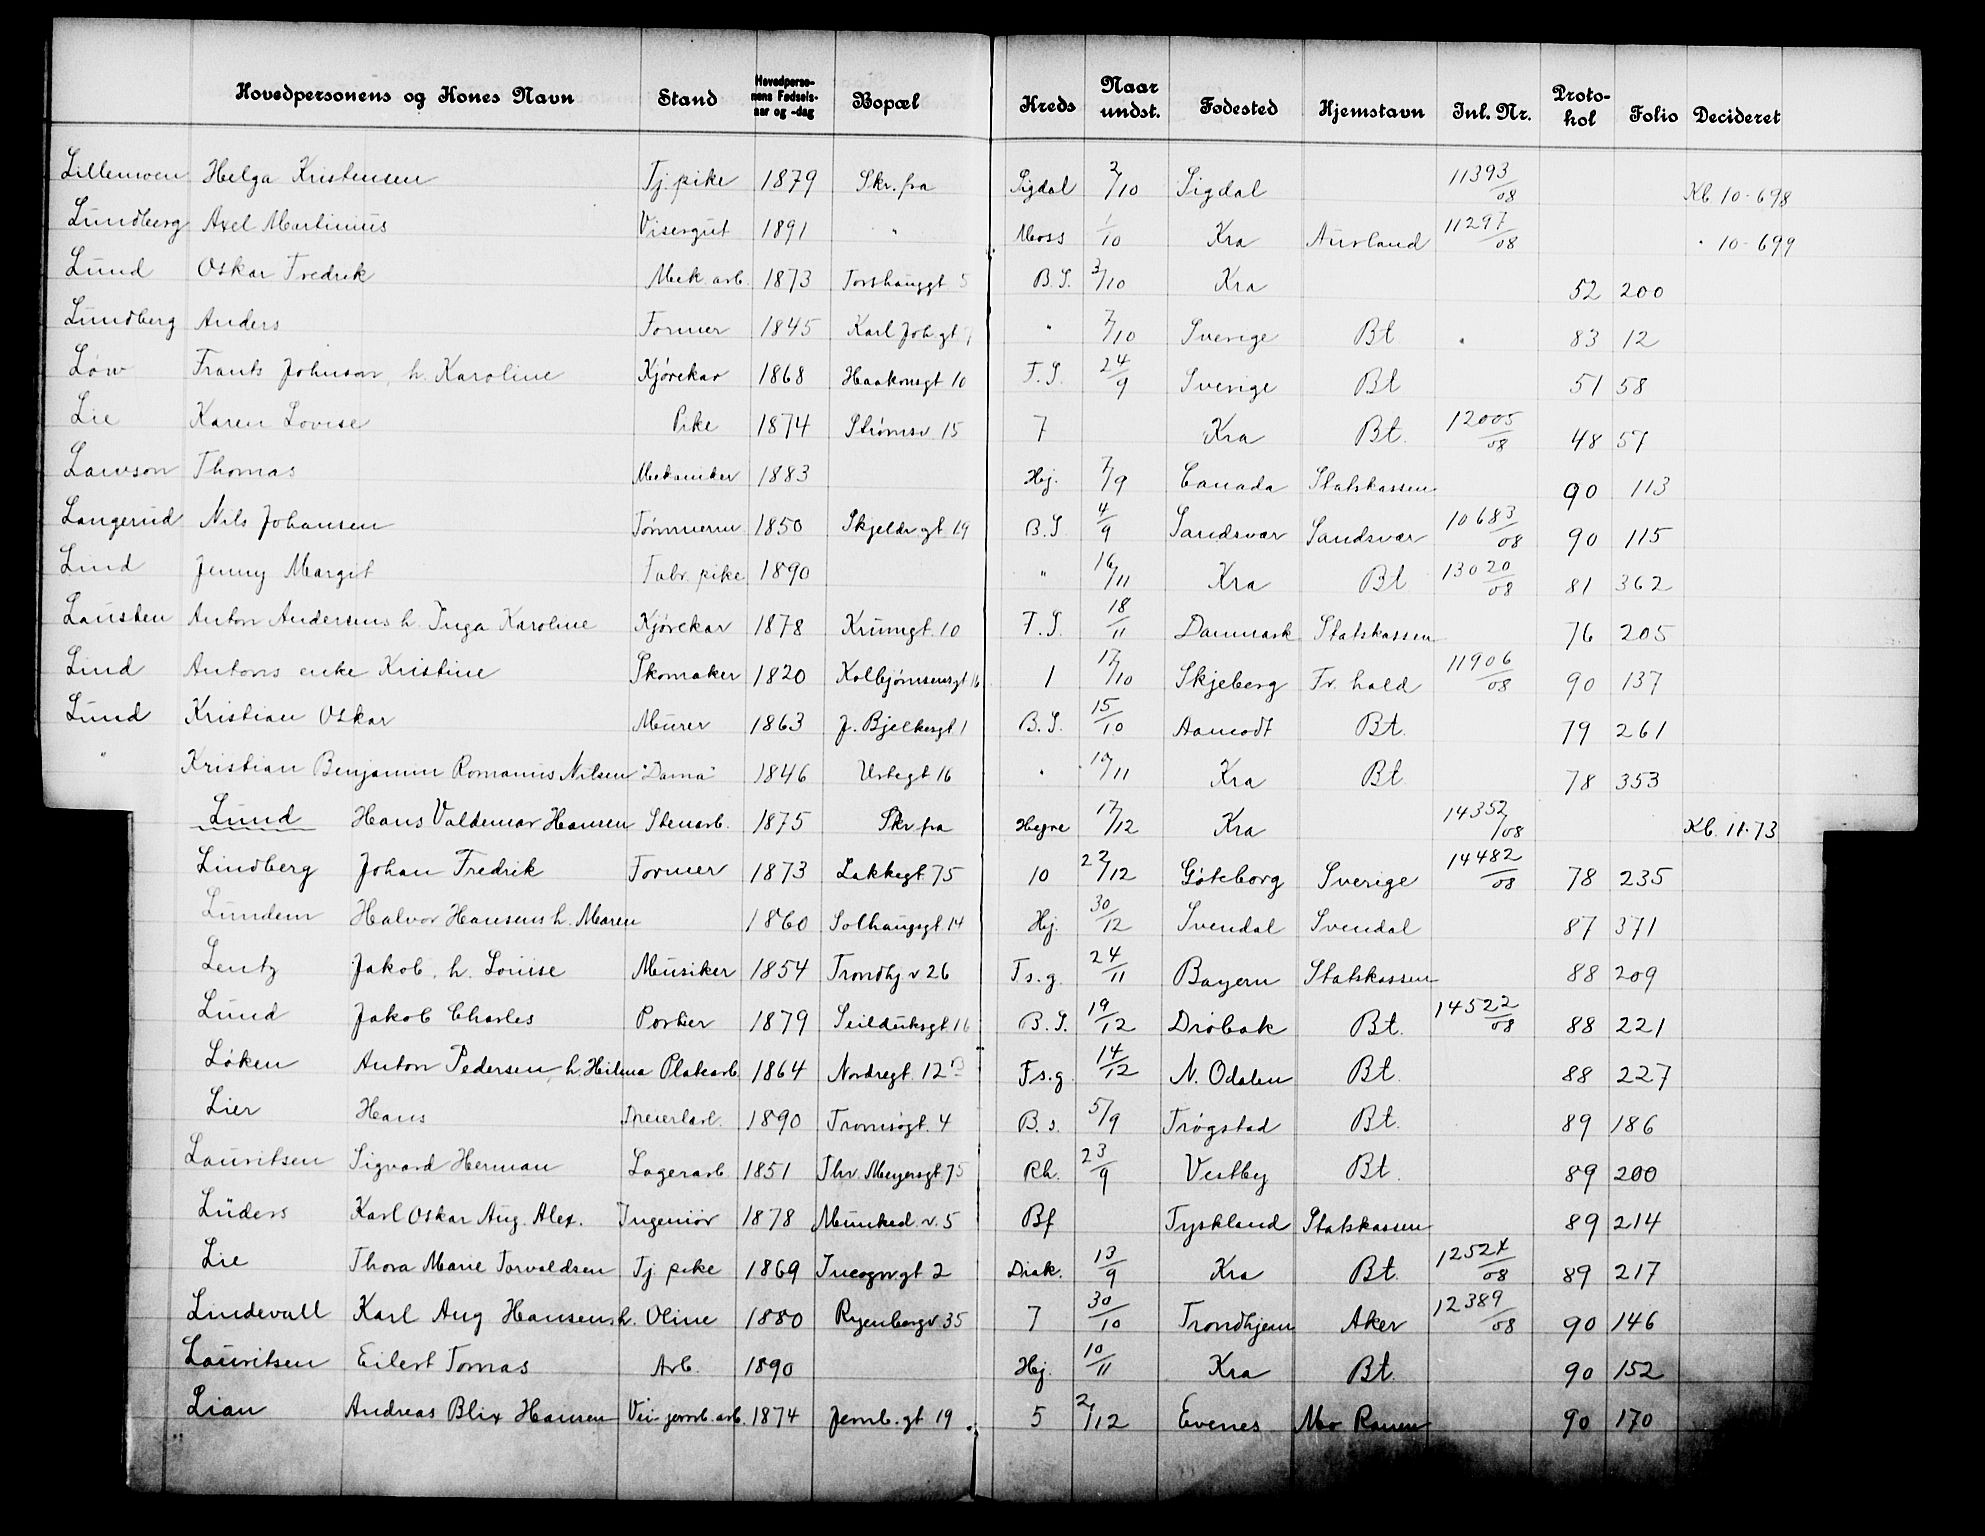 Hovedpersonens og Kones Navn Stand Hovedpersonens Fødselsaar og -dag Bopæl Kreds Naar undst. Fødested Hjemstavn Inl. Nr. Protokol Folio Decideret
Lillemoen Helga Kristensen Tj. pike 1879 Skr. fra Sigdal 2/10 Sigdal 11393/08 Kb 10-698
Lundberg Axel Martinius Visergut 1891 " Moss 1/10 Kra Aurland 11297/08 " 10-699
Lund Oskar Fredrik Mek. arb. 1873 Torshauggt 5 B.S. 3/10 Kra 52 200
Lundberg Anders Former 1845 Karl Joh gt 7 " 7/10 Sverige Bt 83 12
Löw Frants Johnson, h. Karoline Kjörekar 1868 Haakonsgt 10 F.S. 24/9 Sverige Bt 51 58
Lie Karen Lovise Pike 1874 Strömsv 15 7 Kra Bt. 12005/08 48 57
Lawson Thomas Mekaniker 1883 Hej. 7/9 Canada Statskassen 90 113
Langerud Nils Johansen Tömmerm. 1850 Skjeldr gt 19 B.S 4/9 Sandsvær Sandsvær 10683/08 90 115
Lind Jenny Margit Fabr. pike 1890 " 16/11 Kra Bt 13020/08 81 362
Lausten Anton Andersens h. Inga Karoline Kjörekar 1878 Krumgt. 10 F.S. 18/11 Danmark Statskassen 76 205
Lind Antons enke Kristine Skomaker 1820 Kolbjörnsensgt 16 1 17/10 Skjeberg Fr. hald 11906/08 90 137
Lund Kristian Oskar Murer 1863 J. Bjelkesgt 1 B.S. 15/10 Aamodt Bt. 79 261
" Kristian Benjamin Romanus Nilsen "Dama" 1846 Urtegt 16 " 19/11 Kra Bt. 78 353
Lund Hans Valdemar Hansen Stenarb. 1875 Skr fra Hegre 17/12 Kra 14352/08 Kb. 11-73
Lindberg Johan Fredrik Former 1873 Lakkegt 75 10 22/12 Göteborg Sverige 14482/08 78 235
Lundem Halvor Hansens h. Maren 1860 Solhaugsgt. 14 Hj. 30/12 Svendal Svendal 87 371
Lentz Jakob, h. Louise Musiker 1854 Trondhj. v 26 Fs.g. 24/11 Bayern Statskassen 88 209
Lund Jakob Charles Portier 1879 Seilduksgt. 16 B.S. 19/12 Dröbak Bt. 14522/08 88 221
Löken Anton Pedersen, h. Hilma Platearb. 1864 Nordregt. 12 B Fs.g. 14/12 N. Odalen Bt. 88 227
Lier Hans Dreierlærl. 1890 Tromsögt. 4 B.s. 5/9 Trögstad Bt. 89 186
Lauritsen Sigvard Herman Lagerarb. 1851 Thv. Meyersgt. 75 Rh. 23/9 Vestby Bt. 89 200
Lüders Karl Oskar Aug. Alex. Ingeniör 1878 Munked. v. 5 Bf Tyskland Statskassen 89 214
Lie Thora Marie Torvaldsen Tj. pike 1869 Incogn. gt 2 Diak. 13/9 Kra Bt. 12524/08 89 217
Lindevall Karl Aug Hansens h. Oline 1880 Ryenbergv 35 7 30/10 Trondhjem Aker 12389/08 90 146
Lauritsen Eilert Tomas Arb. 1890 Hj. 10/11 Kra Bt. 90 152
Lian Andreas Blix Hansen Vei- jernb. arb. 1874 Jernb. gt 19 5 2/12 Evenes Mo Ranen 90 170